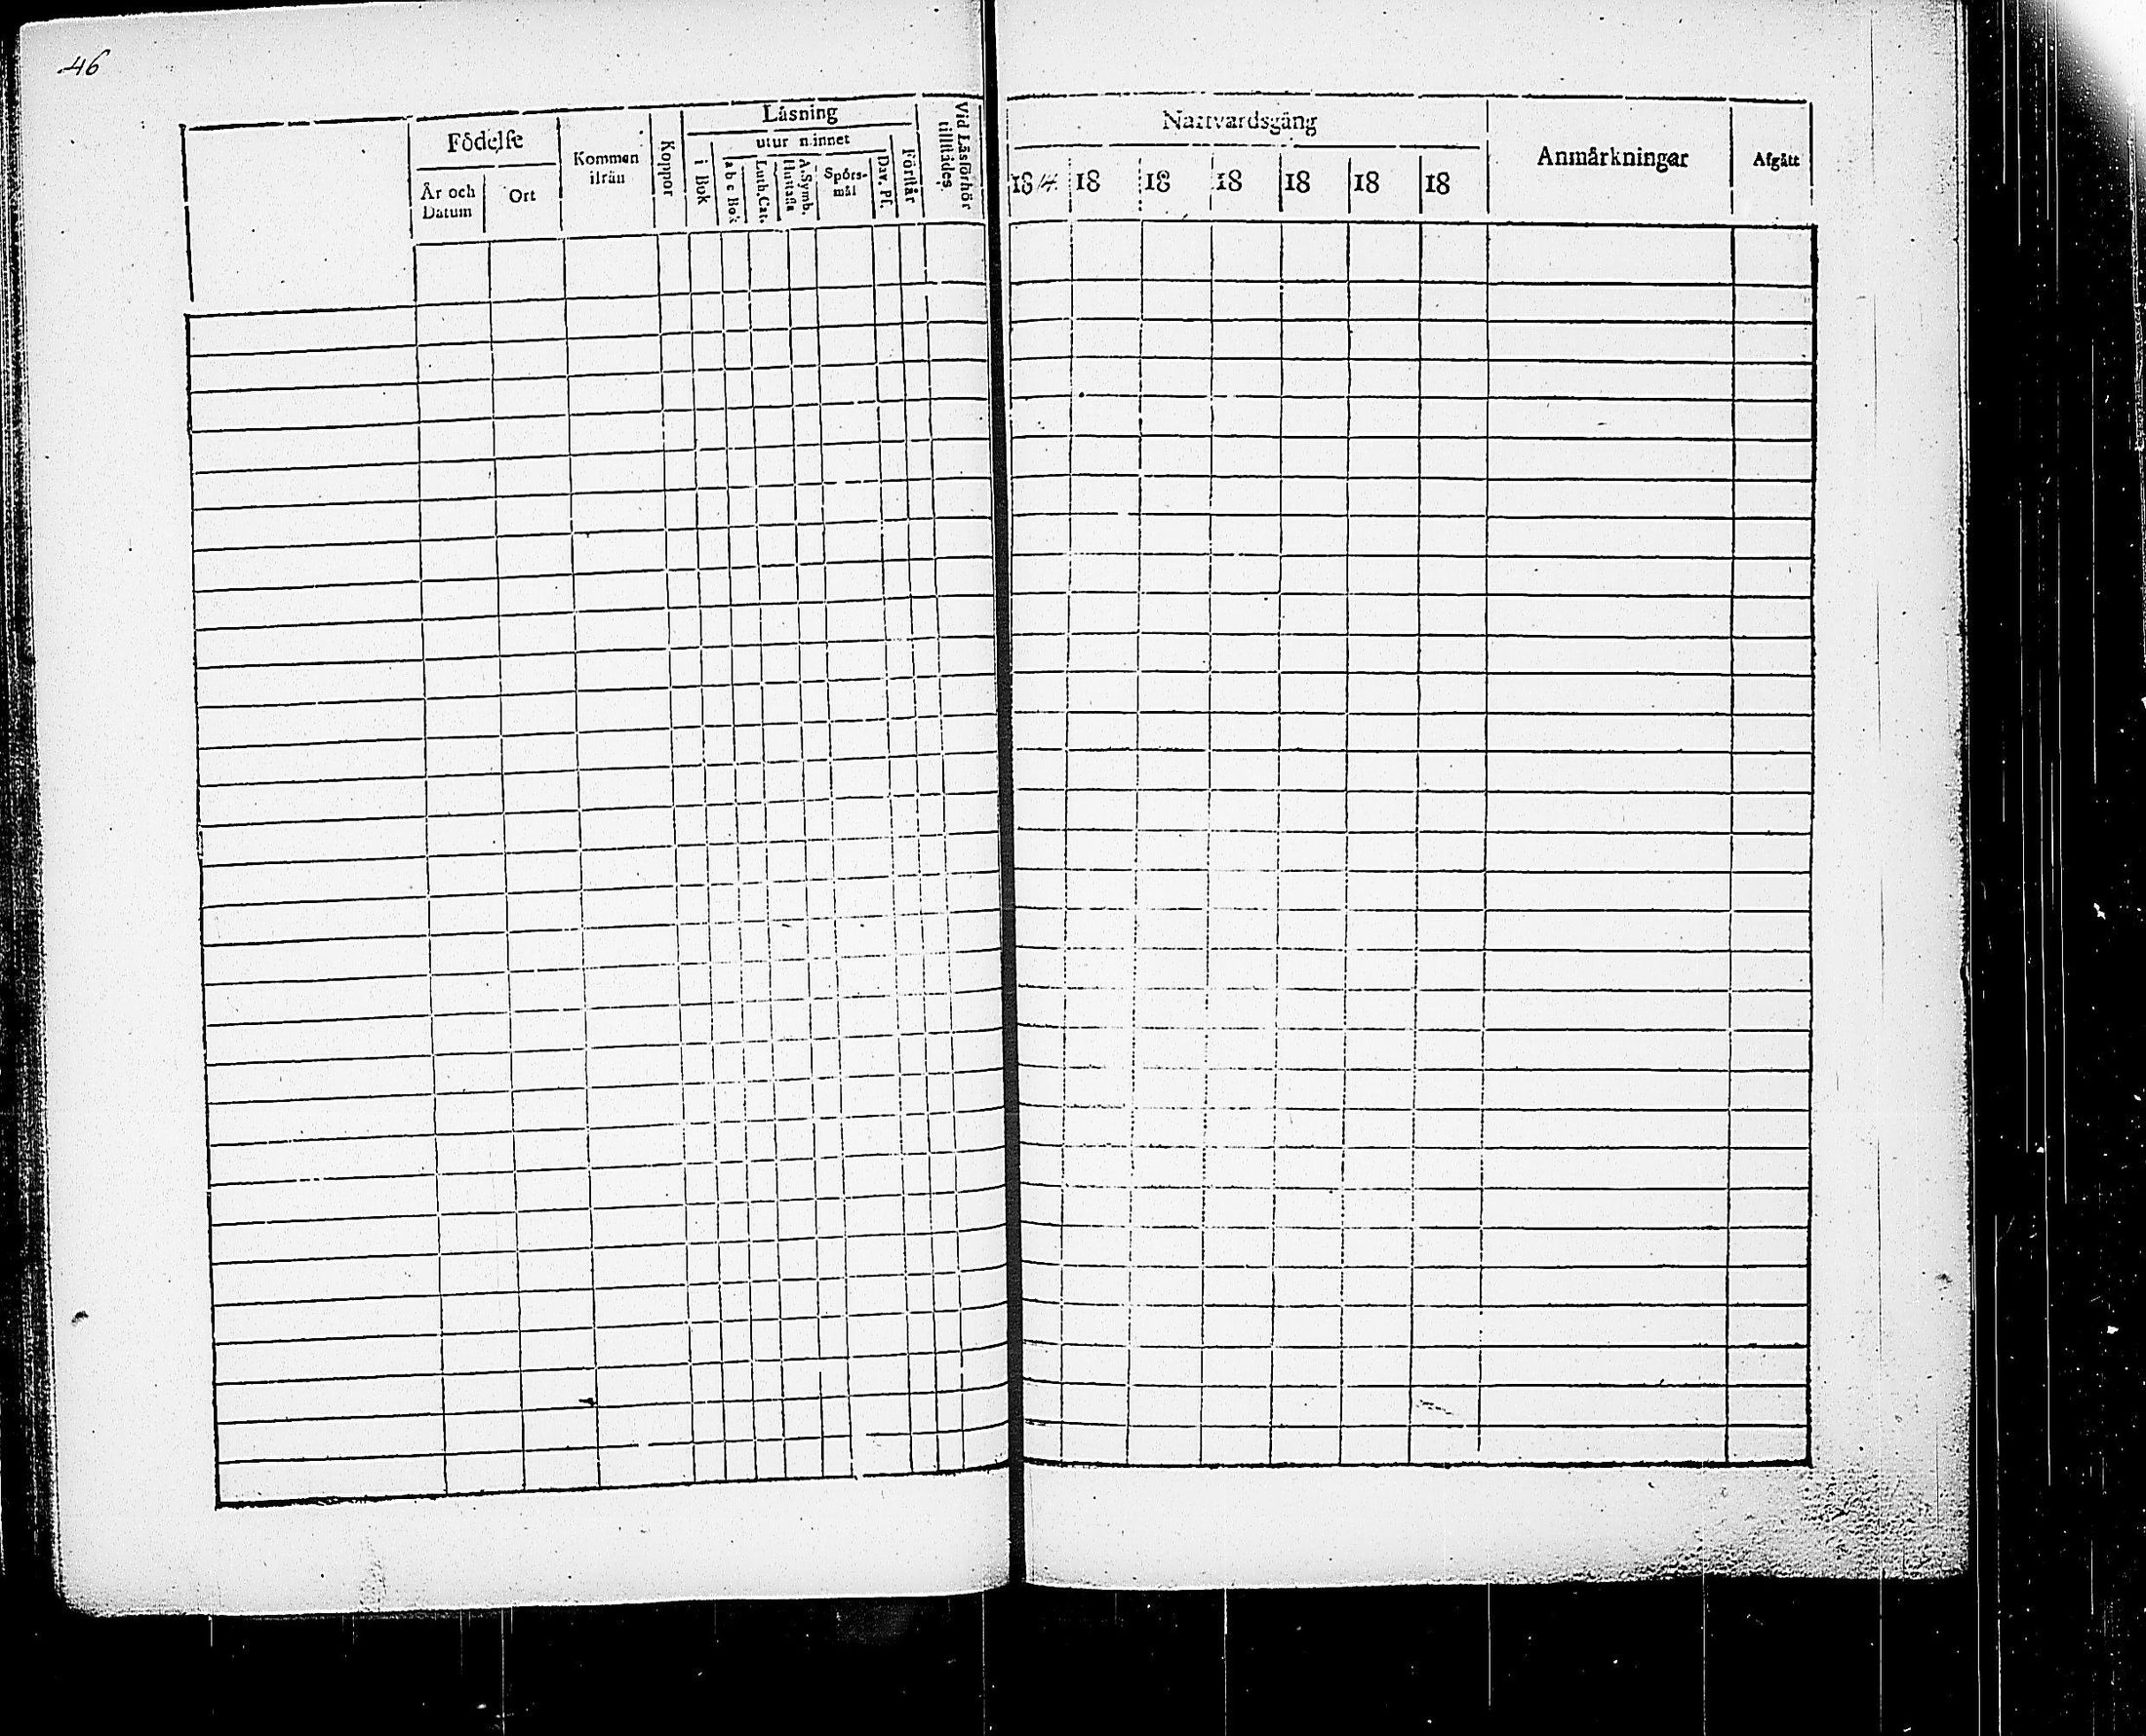 46
Födelse
År och Datum
Ort
Kommen ifrån
Koppor
Läsning
i Bok
utur minnet
a b c Bok
Luth. Cat.
A. Symb. Hustafla
Spörs-mål
Dav. Pf.
Förstår
Vid Läsförhör tillstådes
Nattvardsgång
1814. 18 18 18 18 18 18
Anmärkningar
Afgått